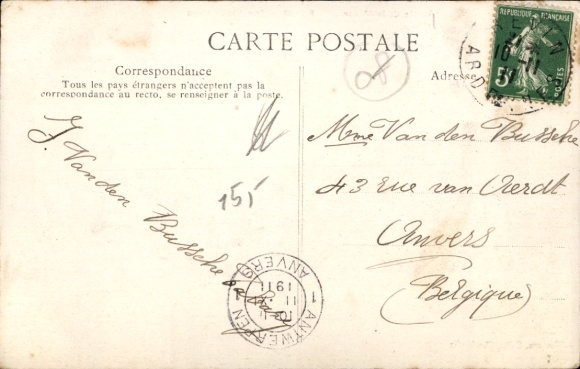 CARTE POSTALE
Correspondance
Tous les pays étrangers n'acceptent pas la
correspondance au recto, se renseigner à la poste.
Adresse
REPUBLIQUE FRANÇAISE
POSTES
5
28
155
J. Vanden Bussche
Mme Van den Bussche
43 rue van Aerdt
Anvers
(Belgique)
1 ANTWERPEN
ANVERS
11
1911